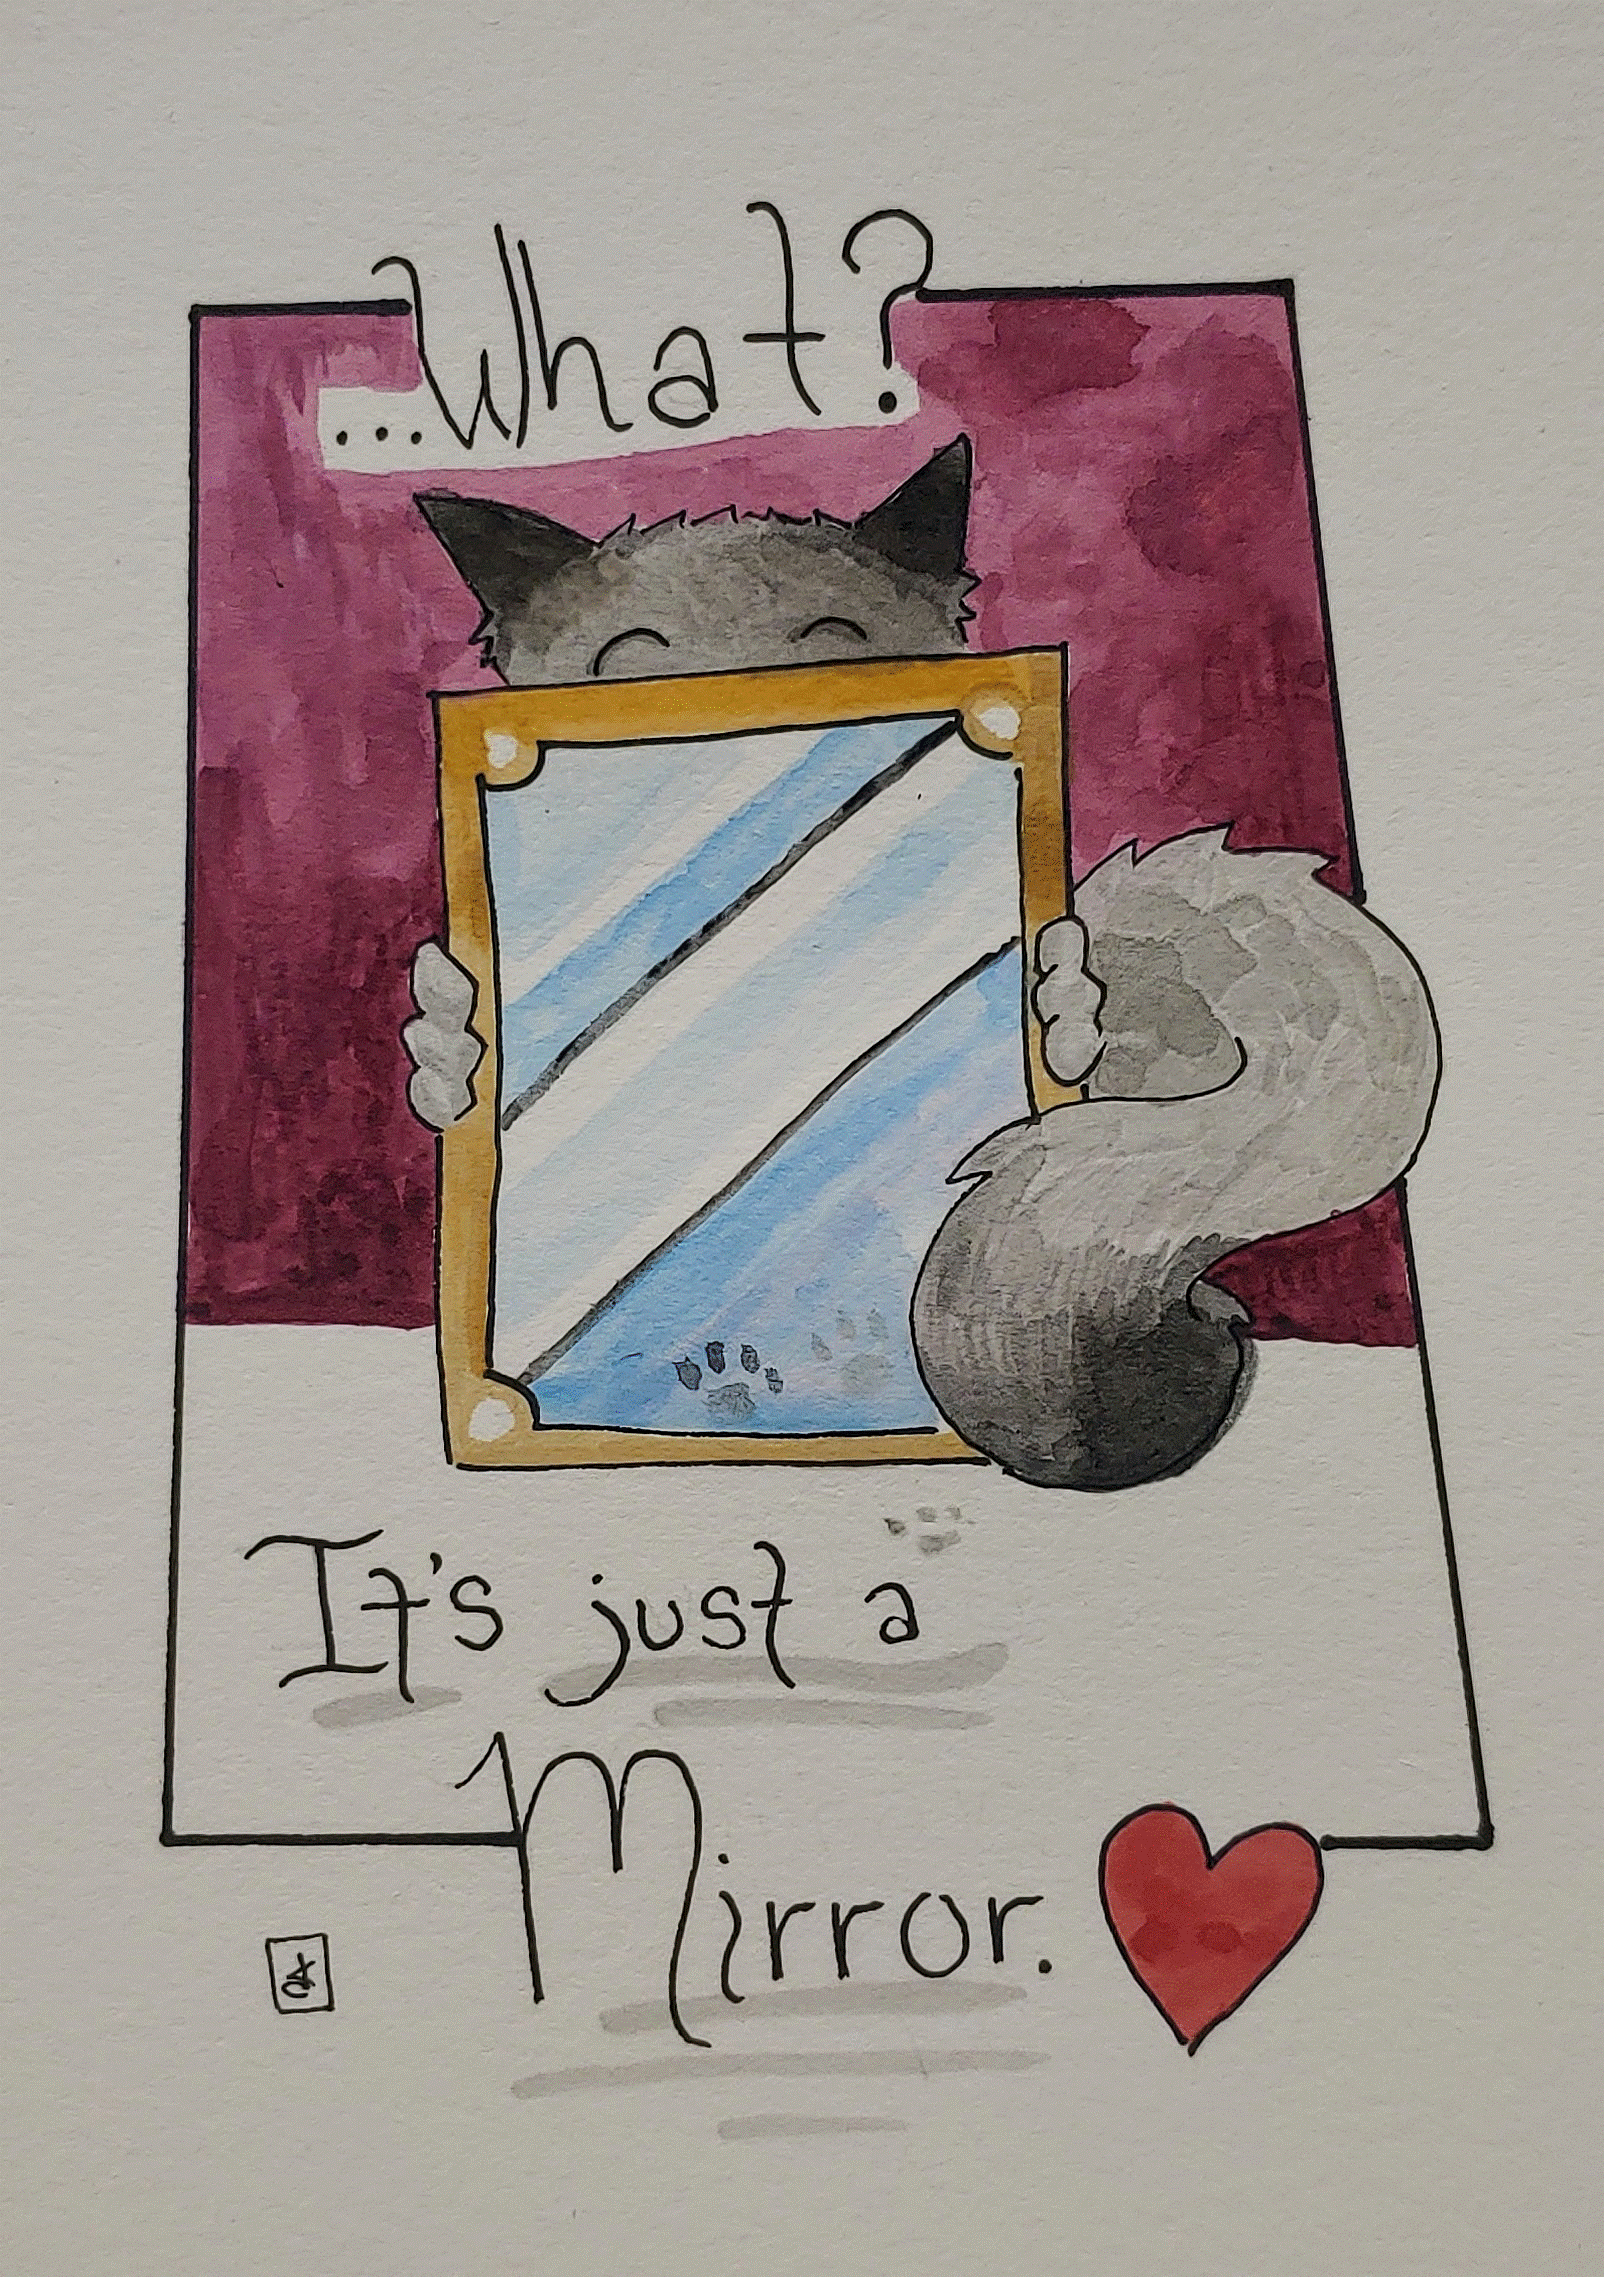 ...What?
It's just a
Mirror.